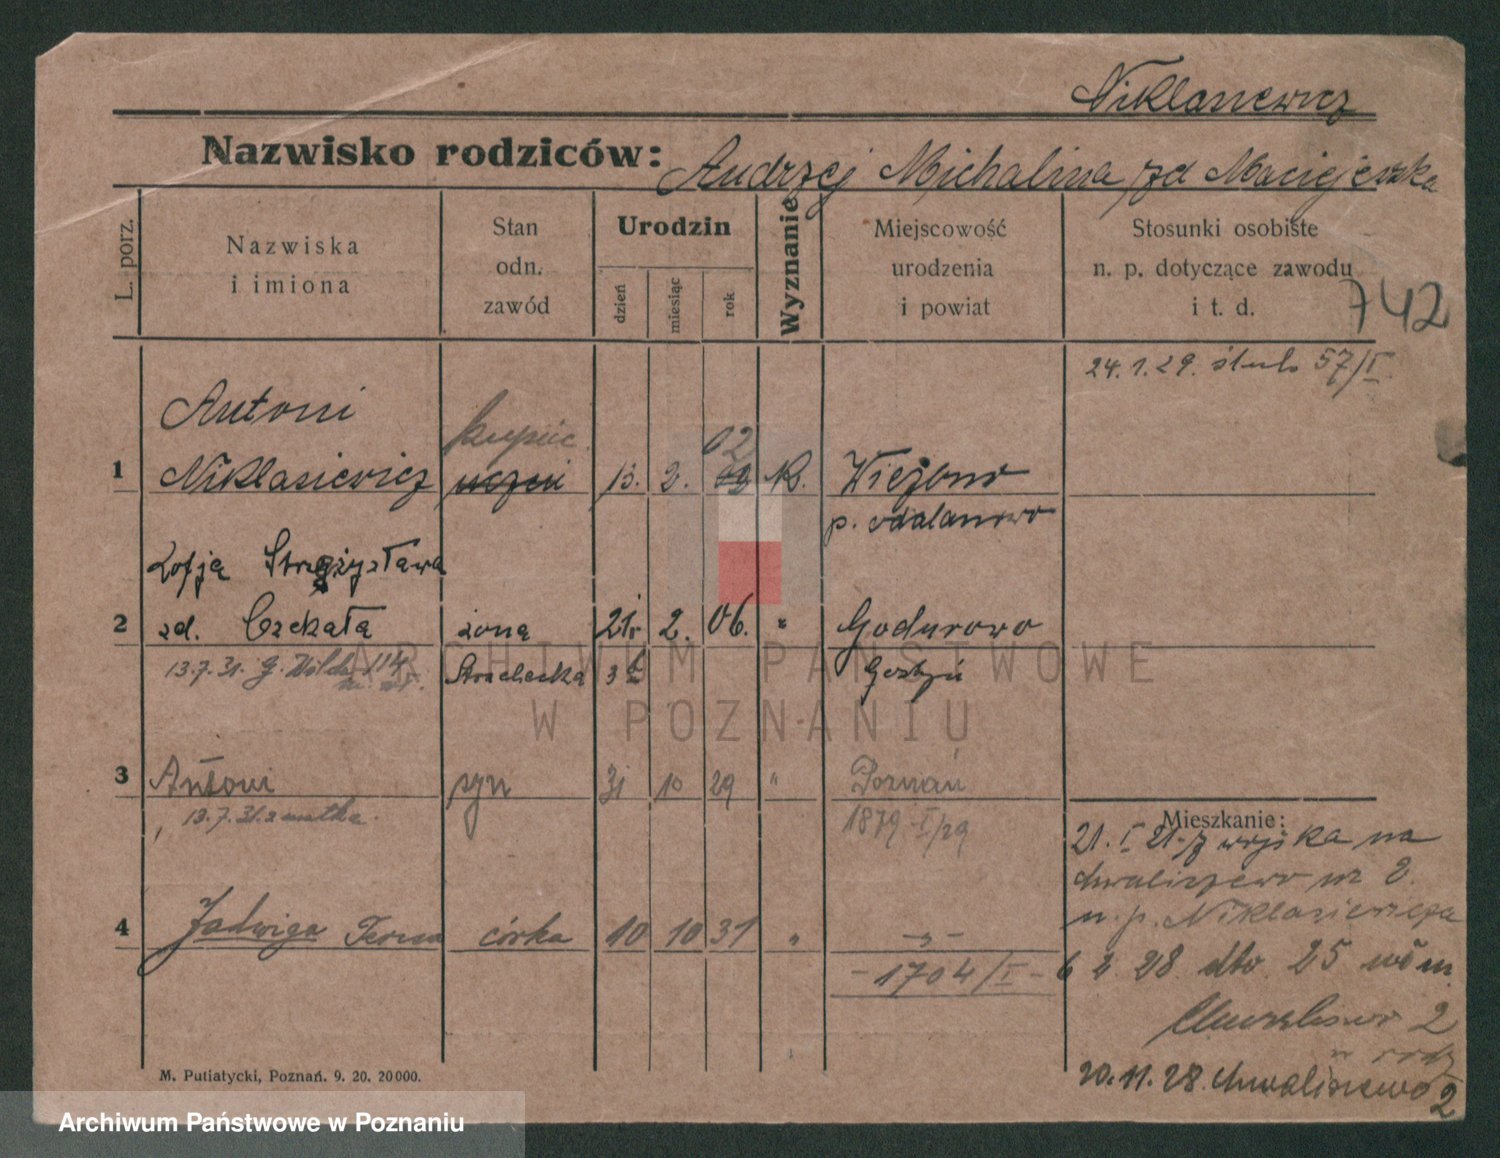 Niklasiewicz
Nazwisko rodziców: Andrzej Michalina zd Maciejewska
L. porz.
Nazwiska
i imiona
Stan
odn.
zawód
Urodzin
dzień
miesiąc
rok
Wyznanie
Miejscowość
urodzenia
i powiat
Stosunki osobiste
n. p. dotyczące zawodu
i t. d.
742
24. 1. 29. ślub 57/I
Antoni
kupiec
02
1 Niklasiewicz uczeń 13. 2. rk. Wieżono
p. odolanowo
Zofja
2 zd. Czekała żona 21 2. 06. " Godurowo
13.7.31. G. 3 Gostyń
3 Antoni syn 31 10 29 " Poznań
13.7.31. z matką. 1879 I/29
4 Jadwiga córka 10 10 31 " -"-
-1704/I-
Mieszkanie:
21. I 21 z wojska na
Chwaliszewo nr 2.
u. p. Niklasiewicza
6 2 28. dto. 25
2
20. 11. 28. Chwaliszewo 2
M. Putiatycki, Poznań. 9. 20. 20000.
ARCHIWUM PAŃSTWOWE
W POZNANIU
Archiwum Państwowe w Poznaniu